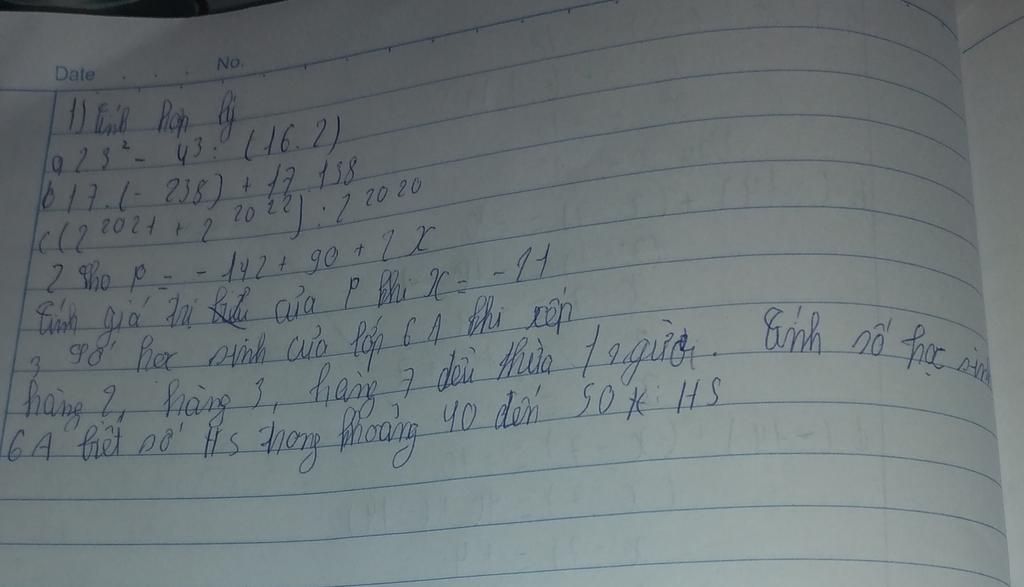 Date No.
1) Tính hợp lý
a, 23² - 4³ : (16.2)
b 17.(-238) + 17 138
c((2²⁰²¹ + 2²⁰²²) : 2²⁰²⁰
2 Cho P = -142 + 90 + 2X
Tính giá trị của P khi X = -11
3 Số học sinh của lớp 6A khi xếp
hàng 2, hàng 3, hàng 7 đều thừa 1 người. Tính số học sinh
6A biết số HS trong khoảng 40 đến 50 HS